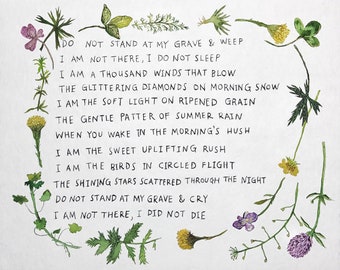 DO NOT STAND AT MY GRAVE & WEEP
I AM NOT THERE, I DO NOT SLEEP
I AM A THOUSAND WINDS THAT BLOW
THE GLITTERING DIAMONDS ON MORNING SNOW
I AM THE SOFT LIGHT ON RIPENED GRAIN
THE GENTLE PATTER OF SUMMER RAIN
WHEN YOU WAKE IN THE MORNING'S HUSH
I AM THE SWEET UPLIFTING RUSH
I AM THE BIRDS IN CIRCLED FLIGHT
THE SHINING STARS SCATTERED THROUGH THE NIGHT
DO NOT STAND AT MY GRAVE & CRY
I AM NOT THERE, I DID NOT DIE